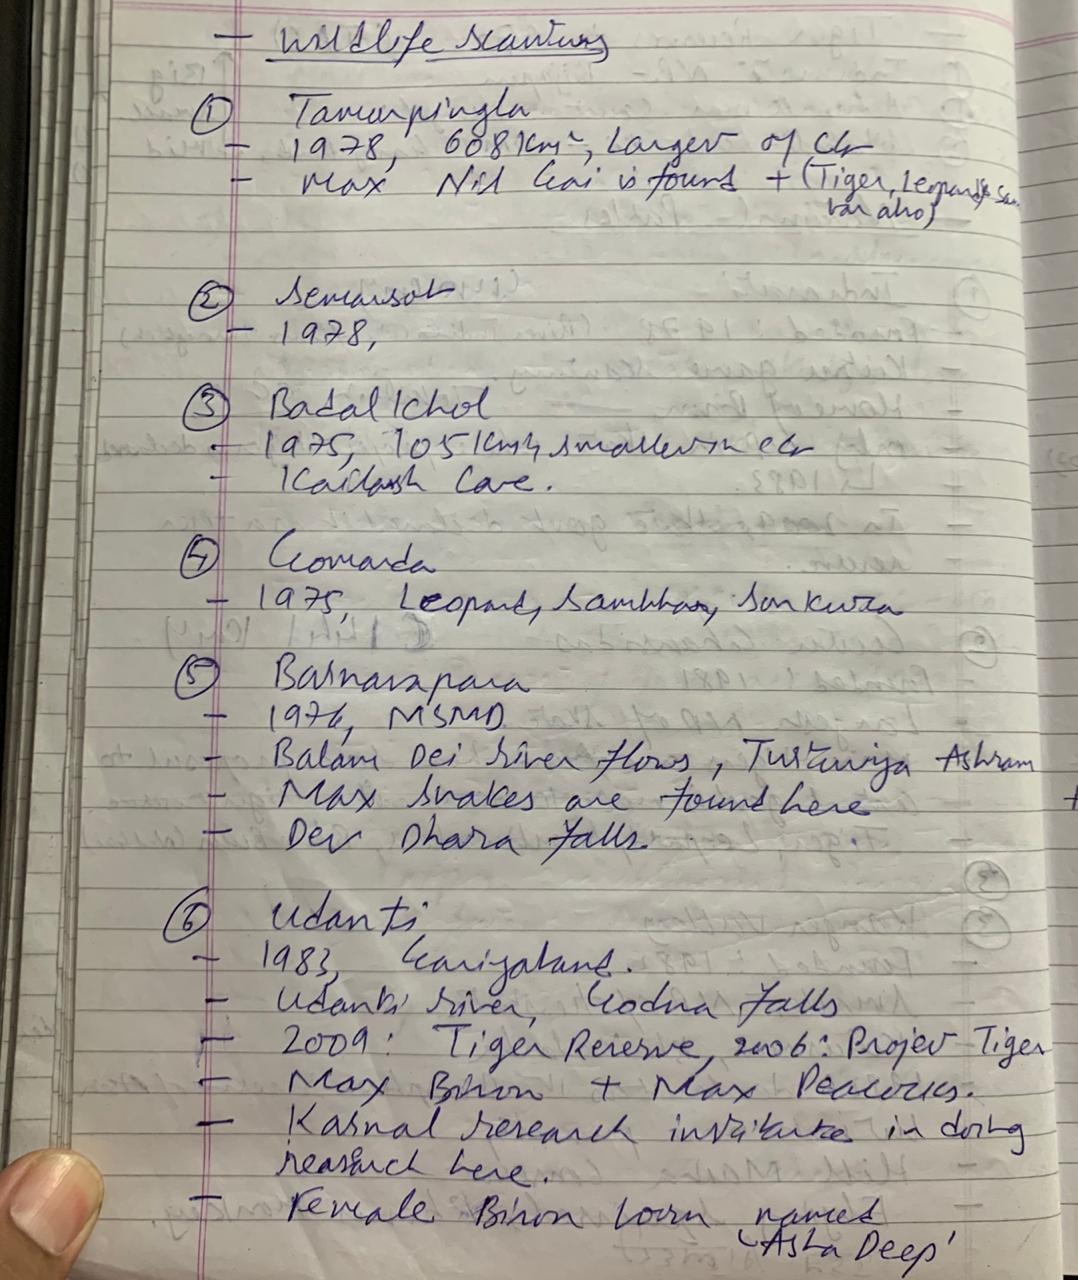 — Wildlife Scantury
① Tamurpingla
- 1978, 608 Km², Largest of CG
- Max Nil Gai is found + (Tiger, Leopard, Sam
bar also)
② Semarsot
- 1978,
③ Badalkhol
- 1975, 105 Km², smallest in CG
- Kailash Cave.
④ Gomarda
- 1975, Leopard, Sambhar, Sonkutta
⑤ Barnavapara
- 1976, MSMD
- Balam Dei river flows, Turturiya Ashram
- Max snakes are found here
- Dev Dhara falls.
⑥ Udanti
- 1983, Gariyaband.
- Udanti river, Godna falls
- 2009: Tiger Reserve, 2006: Project Tiger
- Max Bison + Max Peacocks.
- Karnal research institute in doing
research here.
- Female Bison born named
'Asha Deep'